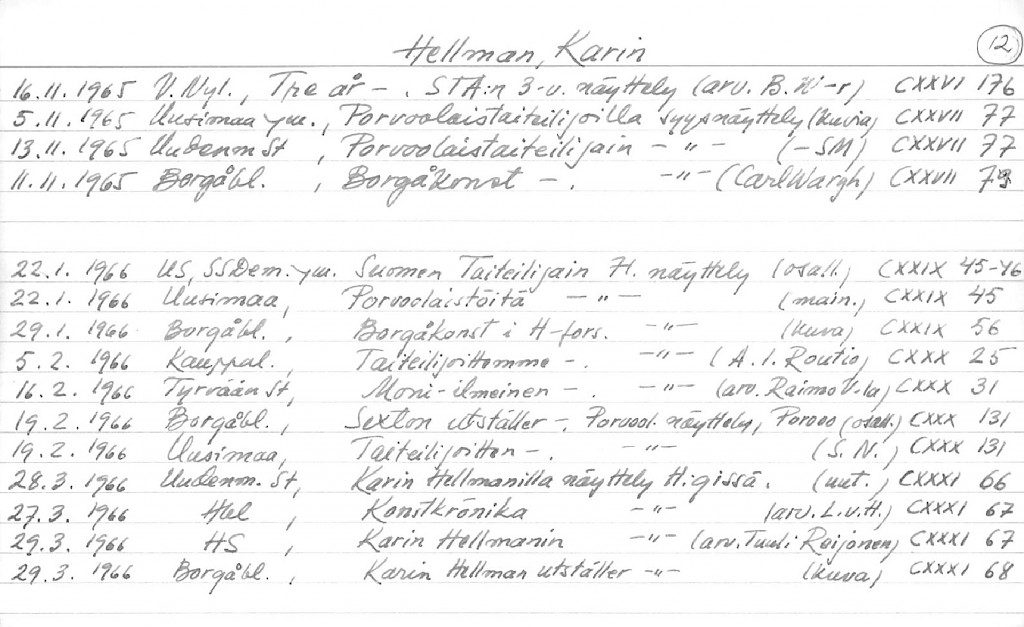 12
Hellman, Karin
16.11.1965 V. Nyl., Tre år - . STA:n 3-v. näyttely (arv. B. W-r) CXXVI 176
5.11.1965 Uusimaa ym., Porvoolaistaiteilijoilla syysnäyttely (kuvia) CXXVII 77
13.11.1965 Uudenm St , Porvoolaistaiteilijain - " - (-SM) CXXVII 77
11.11.1965 Borgåbl. , Borgåkonst - . - " - (Carl Wargh) CXXVII 79
22.1. 1966 US, SSDem. ym. Suomen Taiteilijain H. näyttely (osall.) CXXIX 45-46
22.1. 1966 Uusimaa, Porvoolaistöitä - " - (main.) CXXIX 45
29.1. 1966 Borgåbl. , Borgåkonst i H-fors. - " - (kuva) CXXIX 56
5.2. 1966 Kauppal. , Taiteilijoittemme - . - " - (A. I. Routio) CXXX 25
16.2. 1966 Tyrvään St, Moni-ilmeinen - . - " - (arv. Raimo V-la) CXXX 31
19.2. 1966 Borgåbl. , Sexton utställer - . Porvool. näyttely, Porvoo (osall.) CXXX 131
19.2. 1966 Uusimaa, Taiteilijoitten - . - " - (S. N.) CXXX 131
28.3. 1966 Uudenm. St, Karin Hellmanilla näyttely H:gissä. (uut.) CXXXI 66
27.3. 1966 Hbl , Konstkrönika - " - (arv. L.v.H.) CXXXI 67
29.3. 1966 HS , Karin Hellmanin - " - (arv. Tuuli Reijonen) CXXXI 67
29.3. 1966 Borgåbl. , Karin Hellman utställer - " - (kuva) CXXXI 68